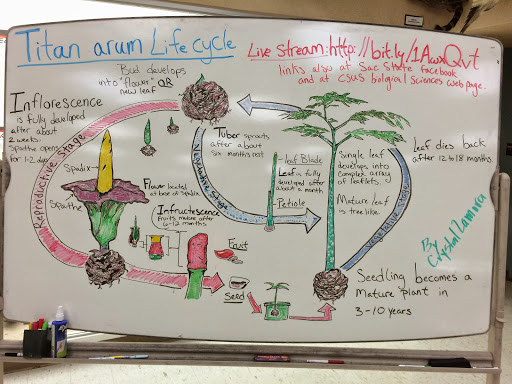 Titan arum Life cycle
Live stream: http://bit.ly/1AwxQvt
links also at Sac State facebook
and at CSUS biological sciences web page.
Bud develops
into "flower" OR
new leaf
Inflorescence
is fully developed
after about
2 weeks.
Spathe opens
for 1-2 days
Reproductive Stage
Spadix
Spathe
Flower located
at base of Spadix
Infructescence
Fruits mature after
6-12 months
Fruit
Seed
Tuber sprouts
after about
six months rest
Vegetative Stage
leaf Blade
Leaf is fully
developed after
about a month
Petiole
Single leaf
develops into
Complex array
of leaflets.
Mature leaf
is tree like.
Vegetative Stage
Leaf dies back
after 12 to 18 months
By
Crystal Zamora
Seedling becomes a
Mature plant in
3-10 years